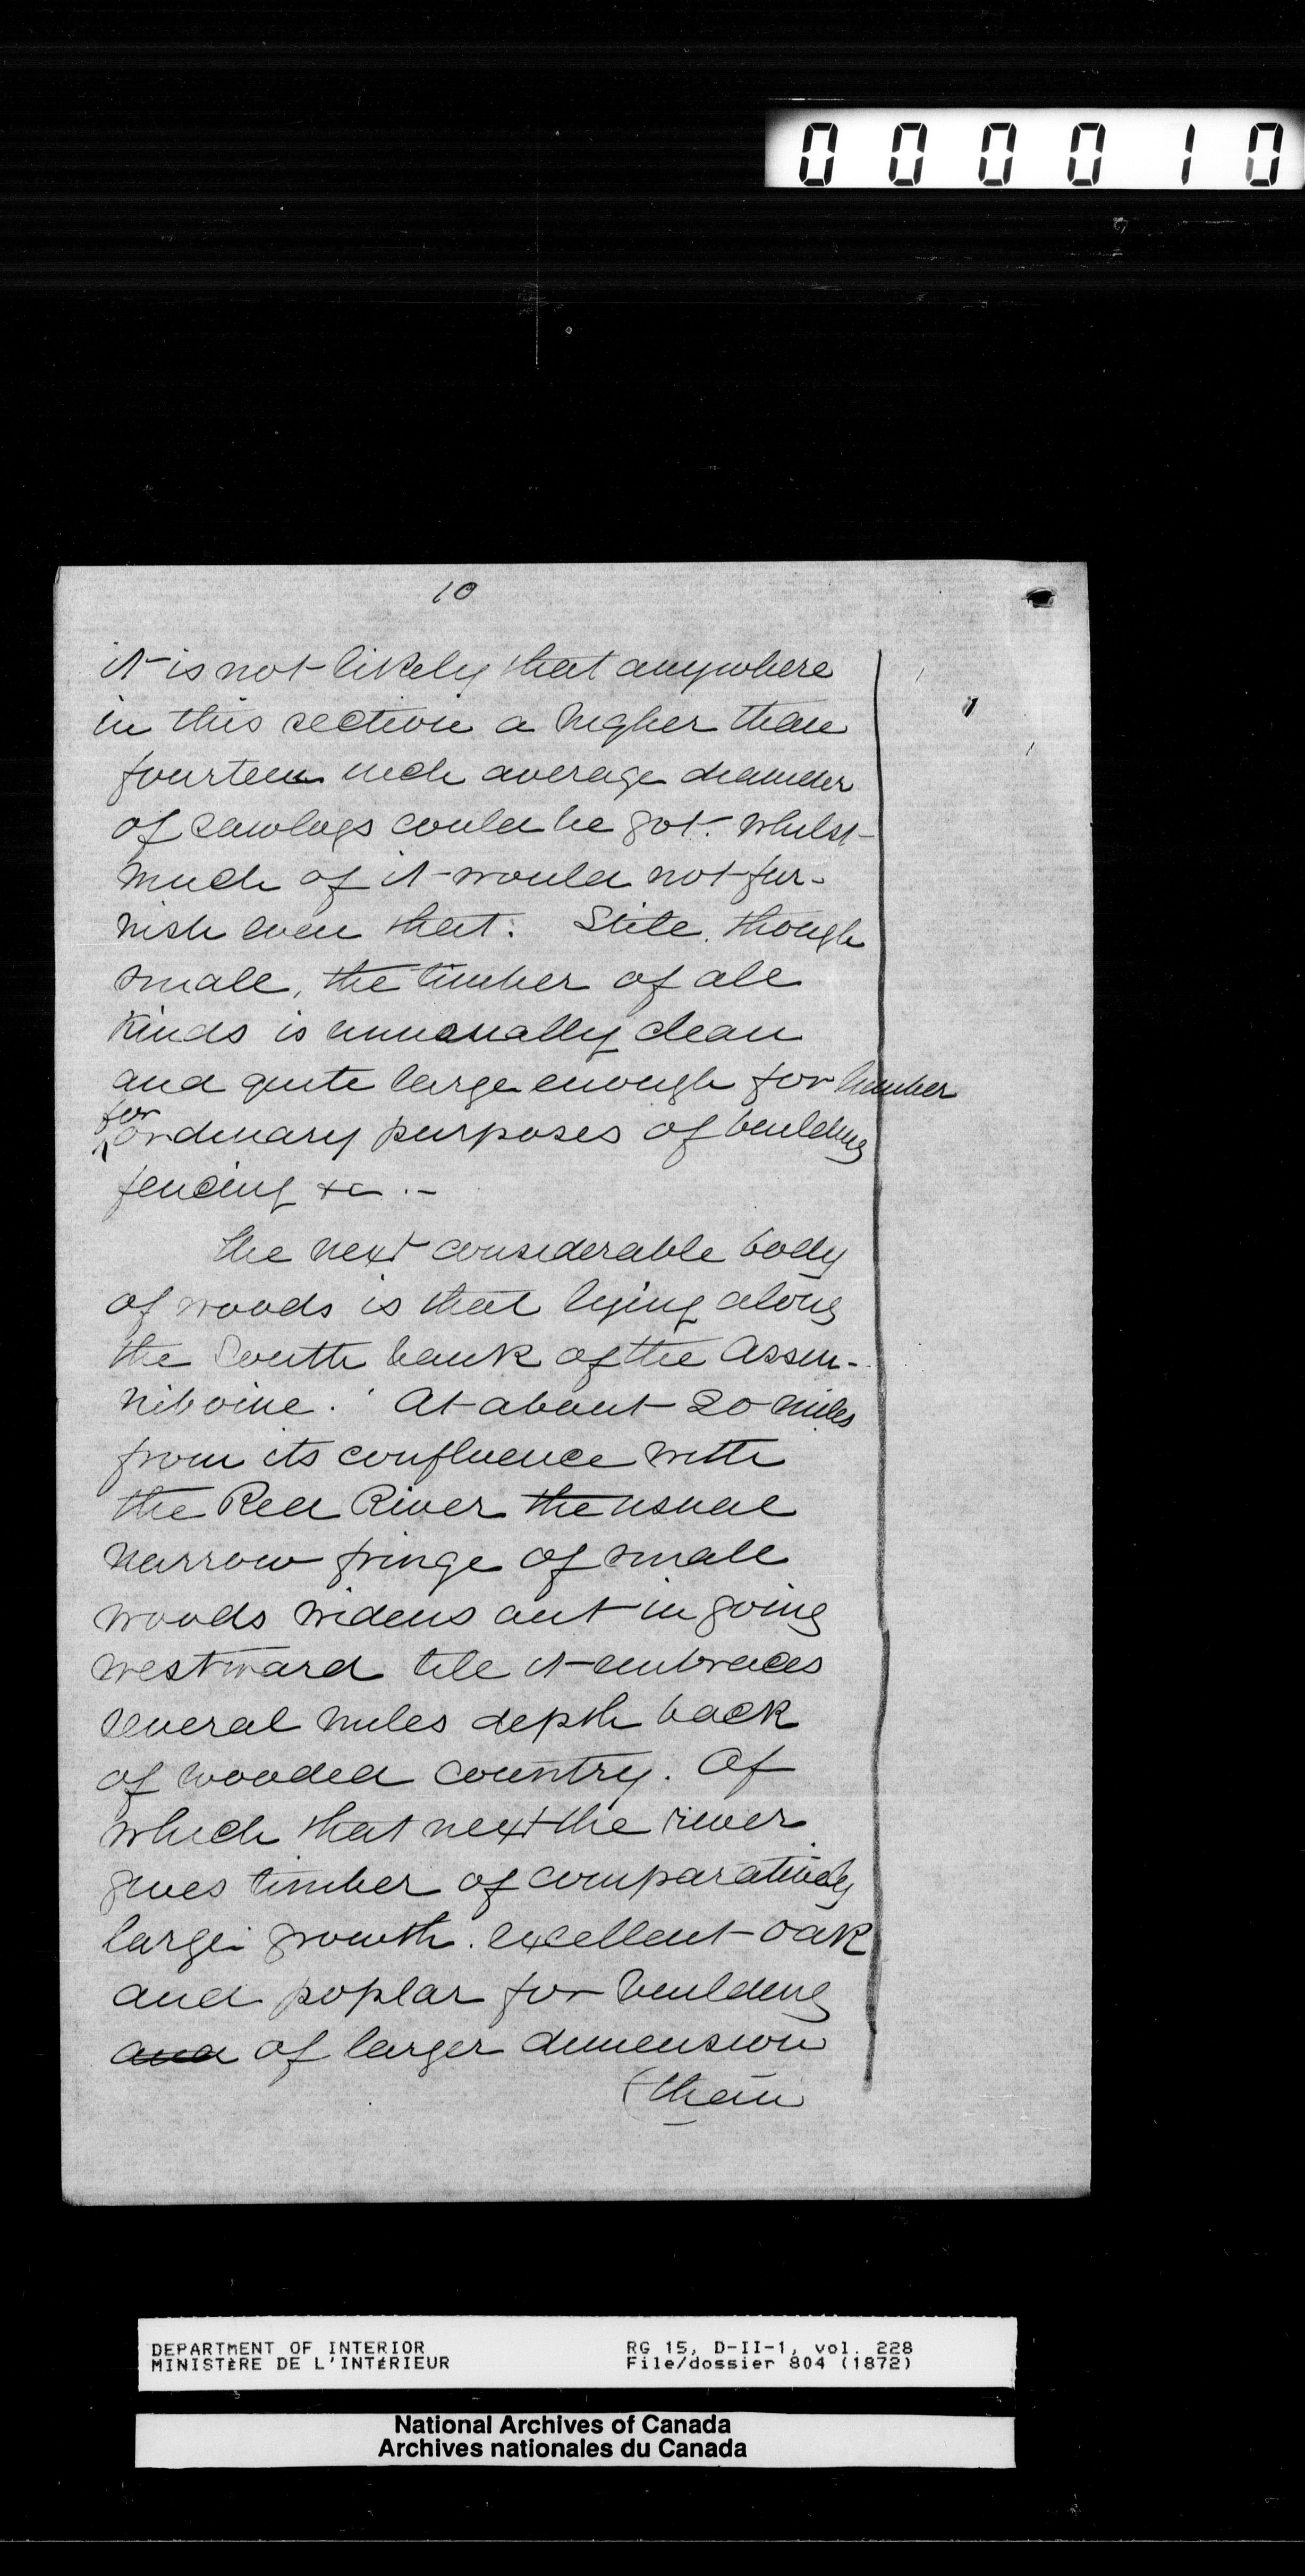 000010
10
it is not likely that anywhere
in this section a higher than
fourteen inch average diameter
of sawlogs could be got. whilst
much of it would not fur-
nish even that. Still, though
small, the timber of all
kinds is unusually clean
and quite large enough for lumber
for
ordinary purposes of building
fencing &c. -
The next considerable body
of woods is that lying along
the South bank of the Assin-
niboine. At about 20 miles
from its confluence with
the Red River the usual
narrow fringe of small
woods widens out in going
westward till it embraces
several miles depth back
of wooded country. Of
which that next the river
gives timber of comparatively
large growth. excellent oak
and poplar for building
and of larger dimension
(than
DEPARTMENT OF INTERIOR
MINISTÈRE DE L'INTÉRIEUR
RG 15, D-II-1, vol. 228
File/dossier 804 (1872)
National Archives of Canada
Archives nationales du Canada